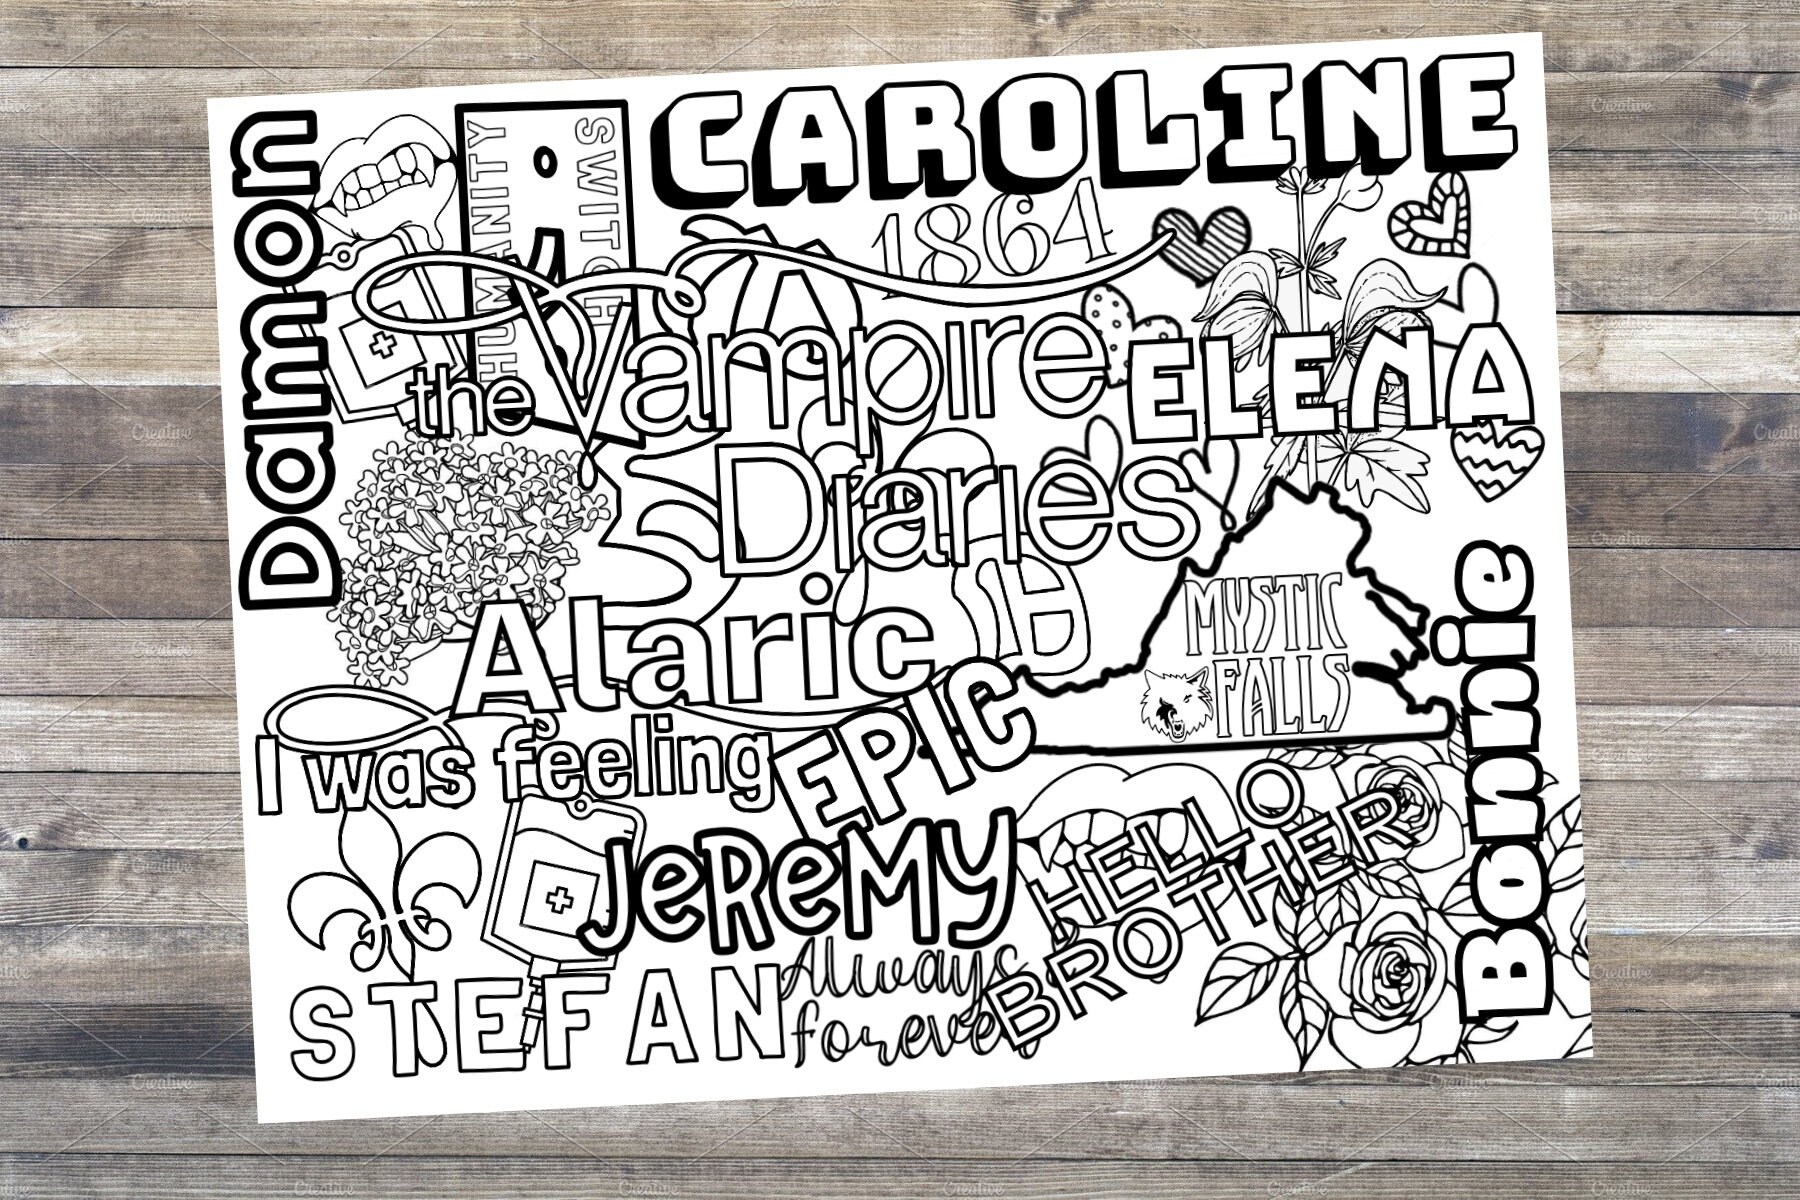 CAROLINE
Damon
HUMANITY
SWITCH
1864
the Vampire
Diaries
ELENA
MYSTIC
FALLS
Alaric
Bonnie
I was feeling
EPIC
JeReMY
HELLO
BROTHER
STEFAN
Always
forever
Creative